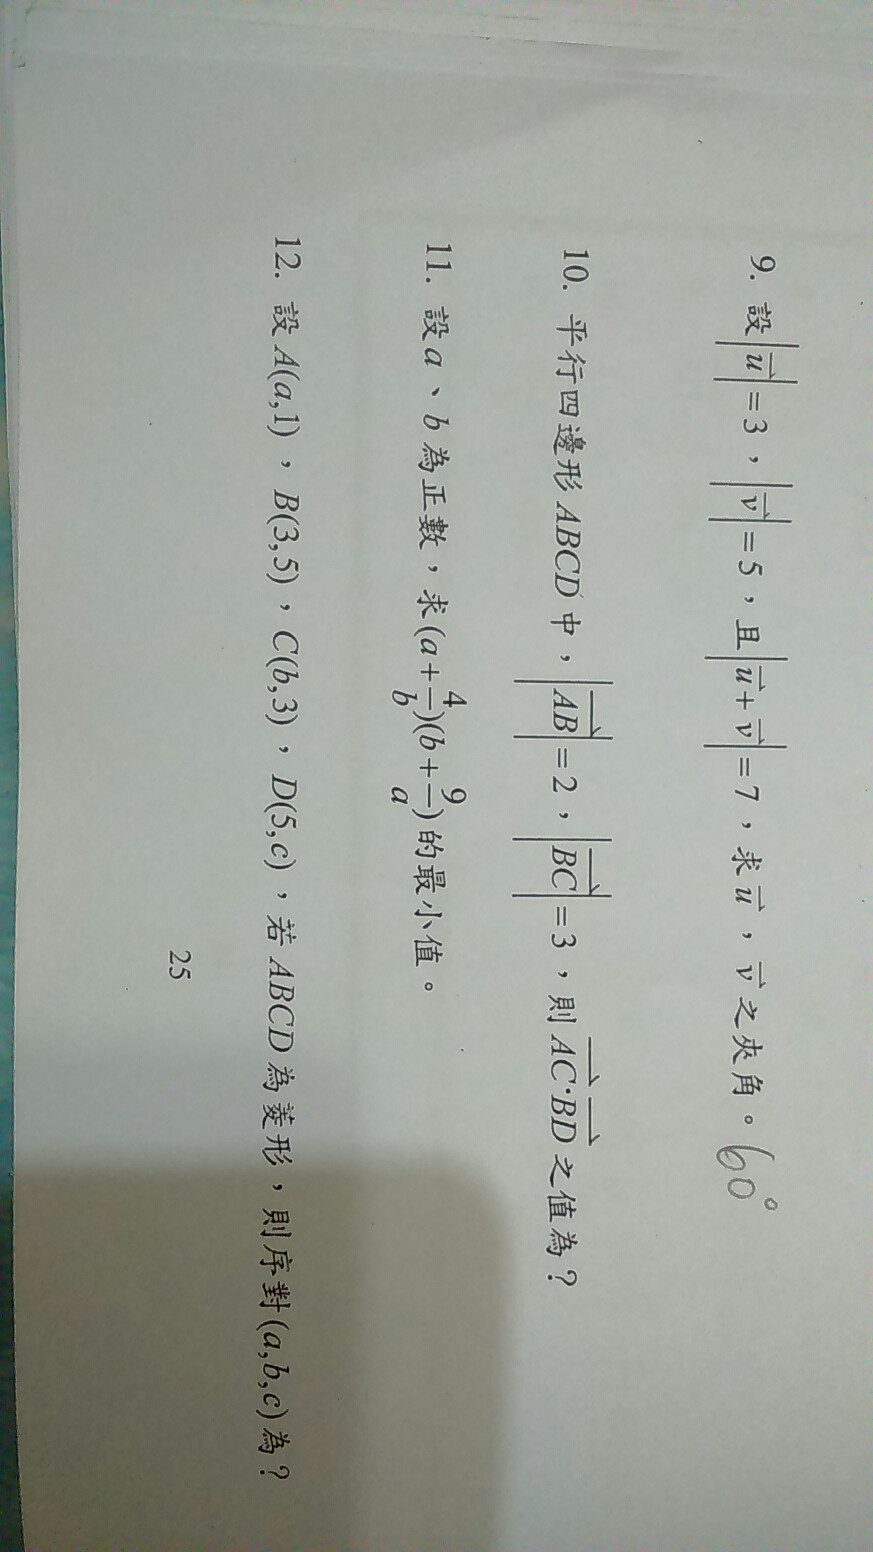 9. 設|u⃗|=3，|v⃗|=5，且|u⃗+v⃗|=7，求u⃗，v⃗之夾角。60°
10. 平行四邊形ABCD中，|AB⃗|=2，|BC⃗|=3，則AC⃗·BD⃗之值為？
11. 設a、b為正數，求(a+4/b)(b+9/a)的最小值。
12. 設A(a,1)，B(3,5)，C(b,3)，D(5,c)，若ABCD為菱形，則序對(a,b,c)為？
25